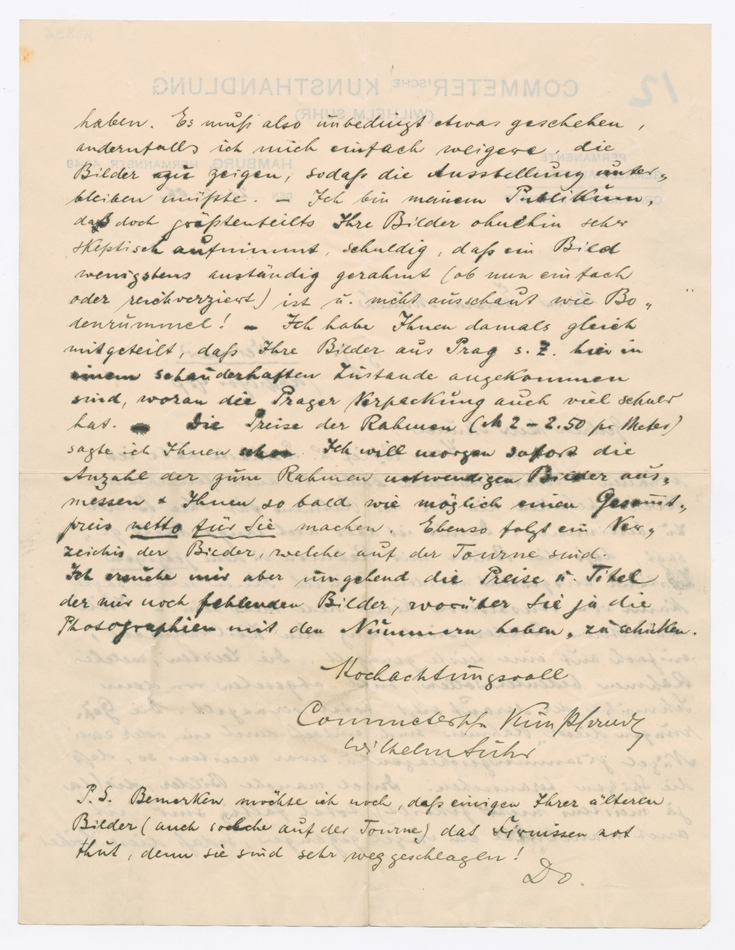 haben. Es muß also unbedingt etwas geschehen,
andernfalls ich mich einfach weigere, die
Bilder zu zeigen, sodaß die Ausstellung unter-
bleiben müßte. – Ich bin meinem Publikum,
daß doch größtenteils Ihre Bilder ohnehin sehr
skeptisch aufnimmt, schuldig, daß ein Bild
wenigstens anständig gerahmt (ob nun einfach
oder reichverziert) ist u. nicht ausschaut wie Bo-
denrummel! – Ich habe Ihnen damals gleich
mitgeteilt, daß Ihre Bilder aus Prag s. Z. hier in
einem schauderhaften Zustande angekommen
sind, woran die Prager Verpackung auch viel schuld
hat. – Die Preise der Rahmen (M 2 – 2.50 pr Meter)
sagte ich Ihnen schon. Ich will morgen sofort die
Anzahl der zum Rahmen notwendigen Bilder aus-
messen & Ihnen so bald wie möglich einen Gesamt-
preis netto für Sie machen. Ebenso folgt ein Ver-
zeichis der Bilder, welche auf der Tourne sind.
Ich ersuche mir aber umgehend die Preise u. Titel
der mir noch fehlenden Bilder, worüber Sie ja die
Photographien mit den Nummern haben, zu schicken.
Hochachtungsvoll
Commetersche Kunsthandlg
Wilhelm Suhr
P.S. Bemerken möchte ich noch, daß einigen Ihrer älteren
Bilder (auch solche auf der Tourne) das Firnissen not
thut, denn sie sind sehr weggeschlagen!
Do.
COMMETER'SCHE KUNSTHANDLUNG
(WILHELM SUHR)
HAMBURG, HERMANNSTR.
12